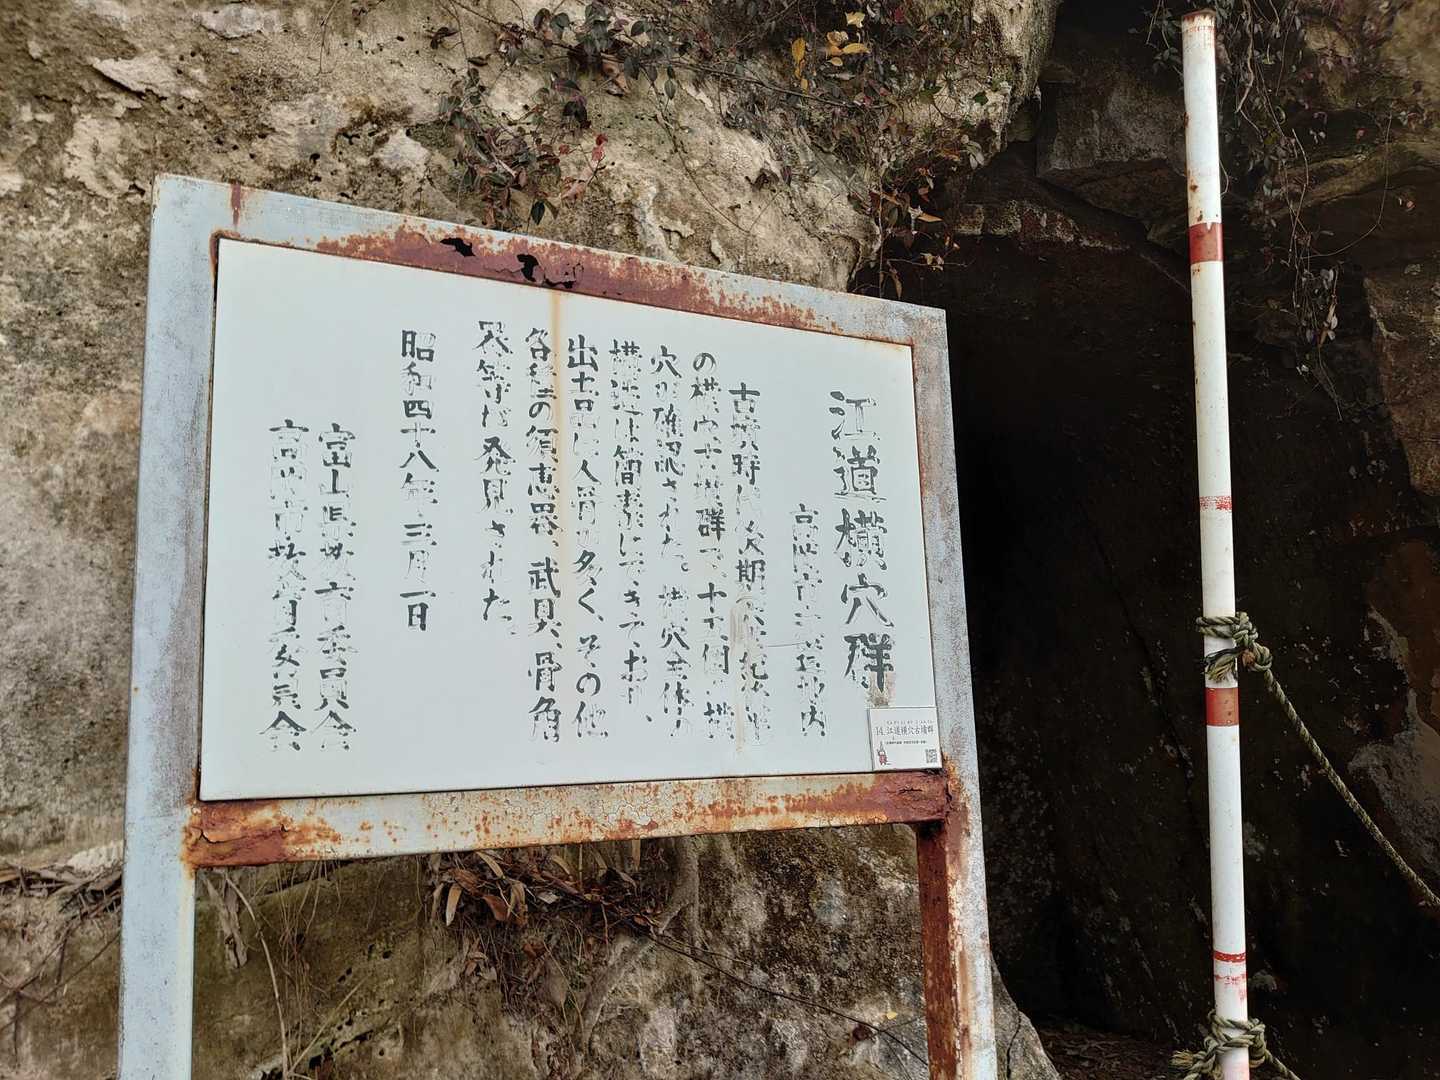 江道横穴群
高岡市江道地内
古墳時代後期
の横穴古墳群で、十六個の墳
穴が確認された。横穴全体が
横造は簡素にできており、
出土品は人骨が多く、その他
各種の須恵器、武具、骨角
器等が発見された。
昭和四十八年三月一日
富山県教育委員会
高岡市教育委員会
14 江道横穴古墳群